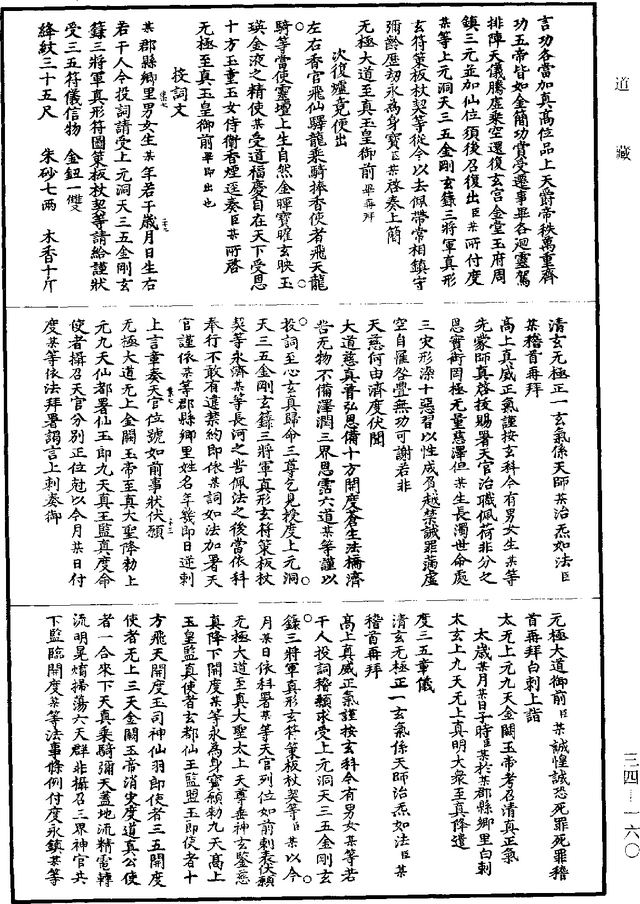 道藏
言功各當加真高位品上天爵帝秩萬重齊
功五帝皆如金簡功賞受遷事畢各迴靈駕
排陣天儀騰虛乘空還復玄宮金堂玉府周
鎮三元並加仙位須後召復出臣某所付度
某等上元洞天三五金剛玄籙三將軍真形
玄符策板杖契等從今以去佩帶常相鎮守
彌齡歷劫永為身寶臣某啓奏上簡
無極大道至真玉皇御前畢再拜
次復爐竟便出
左右香官飛仙驛龍乘騎捧香使者飛天龍
騎等當使靈壇上生自然金暉寶曜玄映玉
瑛金液之精使某受道福慶自在天下受恩
十方玉童玉女侍衛香煙逕奏臣某所啓
無極至真玉皇御前畢即出也
投詞文
某郡縣鄉里男女生某年若干歲月日生右
若干人今投詞請受上元洞天三五金剛玄
籙三將軍真形符圖策板杖契等請給謹狀
受三五符儀信物 金鈕一雙
絳紋三十五尺 朱砂七兩 木香十斤
清玄無極正一玄氣係天師某治炁如法臣
某稽首再拜
高上真威正氣謹按玄科今有男女生某等
先蒙師真啓技賜署天官治職佩荷非分之
恩實銜罔極无量慈澤但某生長濁世命處
三灾形染十惡習以性成負越禁誡罪滿虛
空自罹咎舋無功可謝若非
天慈何由濟度伏聞
大道慈真普弘恩備十方開度蒼生法橋濟
品无物不備澤潤三界恩霑六道某等謹以
投詞至心玄真歸命三尊乞見授度上元洞
天三五金剛玄籙三將軍真形玄符策板杖
契等永濟某等長河之岸佩法之後當依科
奉行不敢有違禁約即依某詞如法加署天
官謹依某等郡縣鄉里姓名年幾即日逆刺
上言章奏天官位號如前事狀伏願
無極大道无上金闕玉帝至真大聖降勑上
元九天仙都署仙玉郎九天真王監真度命
使者攝召天官分別正位尅以今月某日付
度某等依法拜署謁言上刺奏御
元極大道御前臣某誠惶誠恐死罪死罪稽
首再拜白刺上詣
太无上元九天金闕玉帝考召清真正氣
太歲某月某日子時臣某於某郡縣鄉里白刺
太玄上九天无上真明大衆至真降遣
度三五章儀
清玄无極正一玄氣係天師治炁如法臣某
稽首再拜
高上真威正氣謹按玄科今有男女某等若
干人投詞稽顙求受上元洞天三五金剛玄
籙三將軍真形玄符策板杖契等臣某以今
月某日依科署某等天官列位如前刺表伏願
无極大道至真大聖太上天尊垂神玄鑒慈
真降下開度某等永為身寶願勑九天高上
玉皇監真使者玄都仙王監盟玉郎使者十
方飛天開度玉司神仙羽郎使者三五開度
使者无上三天金闕玉帝消灾度道真公使
者一合來下天真乘騎彌天蓋地流精電轉
流明晃熠掃蕩六天群非攝召三界神官共
下監臨開度某等法事條例付度永鎮某等
三四—一六〇